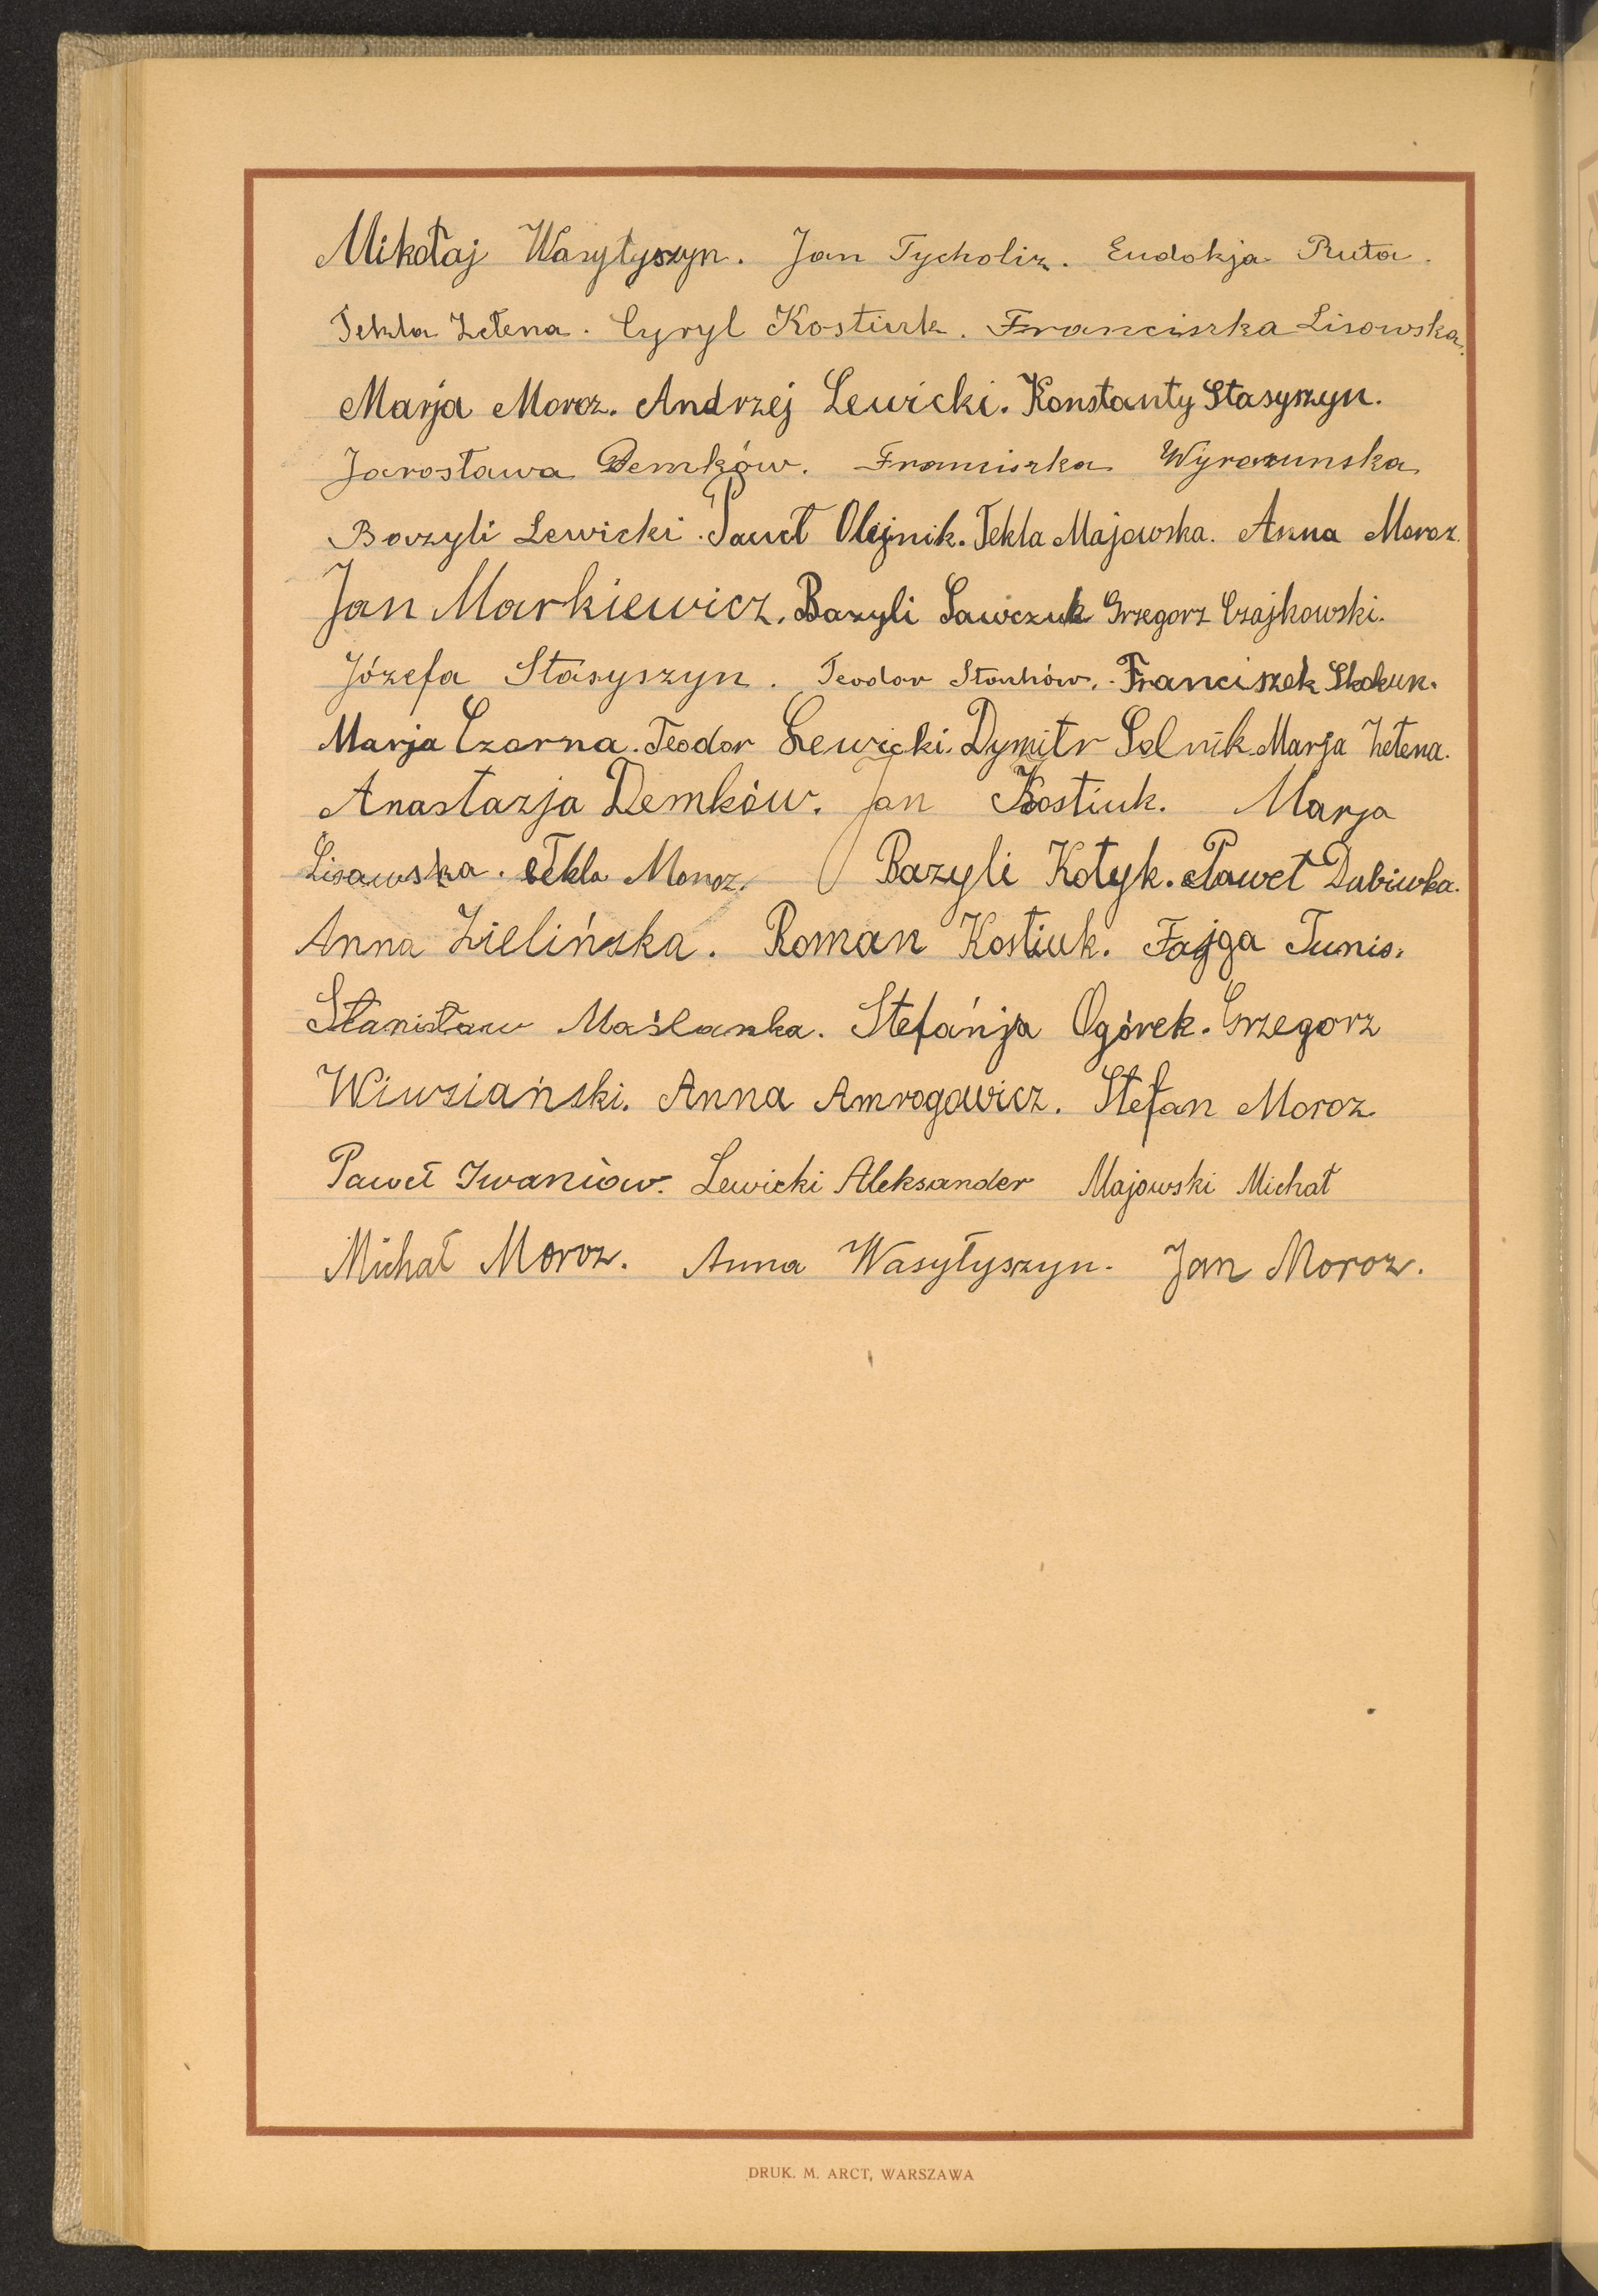 Mikołaj Wasyłyszyn. Jan Tycholiz. Eudokja Ruta.
Tekla Zełena. Cyryl Kostiuk. Franciszka Lisowska.
Marja Moroz. Andrzej Lewicki. Konstanty Stasyszyn.
Jarosława Demków. Franciszka
Bazyli Lewicki. Paweł Olejnik. Tekla Majowska. Anna Moroz.
Jan Markiewicz. Bazyli Sawczuk Grzegorz Czajkowski.
Józefa Stasyszyn. Teodor Franciszek Skokun.
Marja Czorna. Teodor Lewicki. Dymitr Solnik. Marja Zełena.
Anastazja Demków. Jan Kostiuk. Marja
Lisowska. Tekla Moroz. Bazyli Kotyk. Paweł Dubiwka.
Anna Zielińska. Roman Kostiuk. Fajga Tunis.
Stanisław Maślanka. Stefańja Ogórek. Grzegorz
Wiwsiański. Anna Amrogowicz. Stefan Moroz
Paweł Iwaniów. Lewicki Aleksander Majowski Michał
Michał Moroz. Anna Wasyłyszyn. Jan Moroz.
DRUK. M. ARCT, WARSZAWA